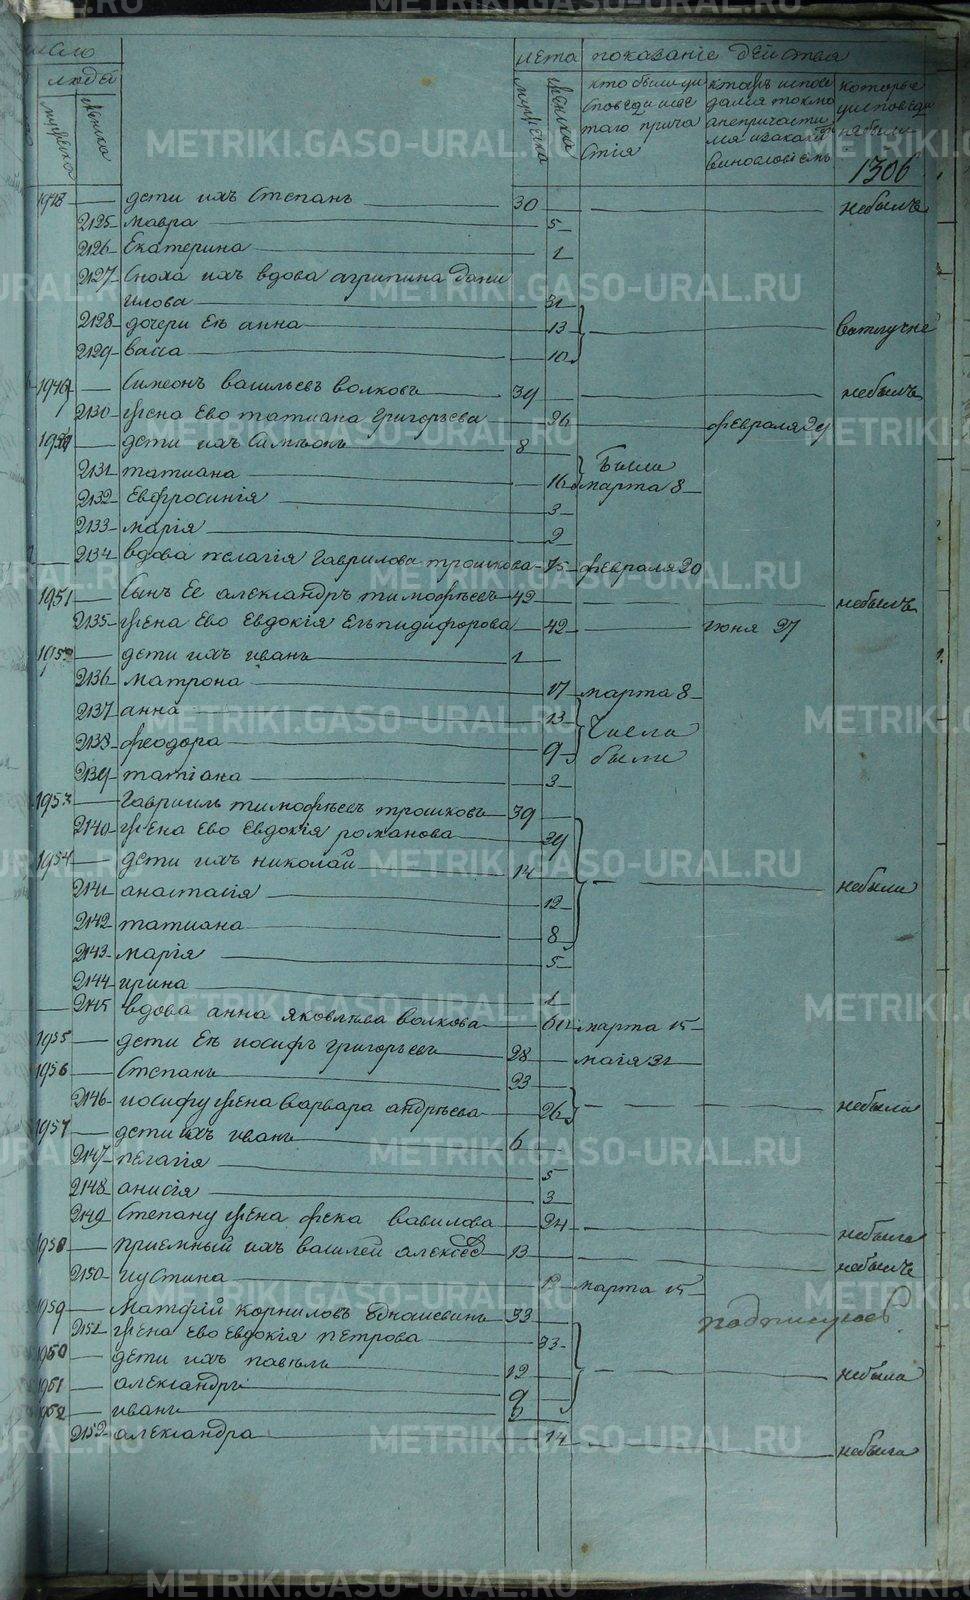 число
людей
мужеска
женска
лета
мужеска
женска
показание действа
кто были у и
споведи и свя
таго прича
стія
которые
у исповеди
небыли
1306
1948 дети ихъ Степанъ 30 небылъ
2125 мавра 5
2126 Екатерина 1
2127 Сноха ихъ вдова агрипина Дани
илова 31
2128 дочери Ея анна 13
2129 васса 10
Симеонъ васильевъ волковъ 39 небылъ
2130 жена Ево татиана григорьева 36 февраля 29
дети ихъ Симеонъ 8
2131 татиана 16 были марта 8
2132 Евфросинія 3
2133 марія 2
2134 вдова пелагія гаврилова трошкова 75 февраля 20
1951 Сынъ Ее александръ тимофеевъ 42 небылъ
2135 жена Ево Евдокія Елпидифорова 42 июня 27
1952 дети ихъ иванъ 1
2136 матрона 17 марта 8
2137 анна 13 числа
2138 феодора 9 были
2139 татіана 3
1953 Гавриилъ тимофеевъ трошковъ 39
2140 жена Ево Евдокія романова 39
1954 дети ихъ николай 14
2141 анастасія 12 небыли
2142 татиана 8
2143 марія 5
2144 ирина 1
2145 вдова анна яковлева волкова 60 марта 15
1955 дети Ея иосифъ григорьевъ 28 маія 31
1956 Степанъ 23
2146 иосифу жена варвара андреева 26 небыли
1957 дети ихъ иванъ 6
2147 пелагія 5
2148 анисія 3
2149 Степану жена фекла вавилова 24 небыла
1958 приемный ихъ василей алексеевъ 13 небылъ
2150 иустина марта 15
1959 Матфій корниловъ 33 подписуюсь
2151 жена Ево Евдокія петрова 33
1960 дети ихъ павелъ 12 небыли
1961 александръ 9
1962 иванъ 6
2152 александра 14 небыла
METRIKI.GASO-URAL.RU